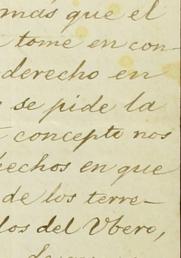 más que el
tome en con-
derecho en
se pide la
concepto nos
hechos en que
de los terre-
los del Ubero,